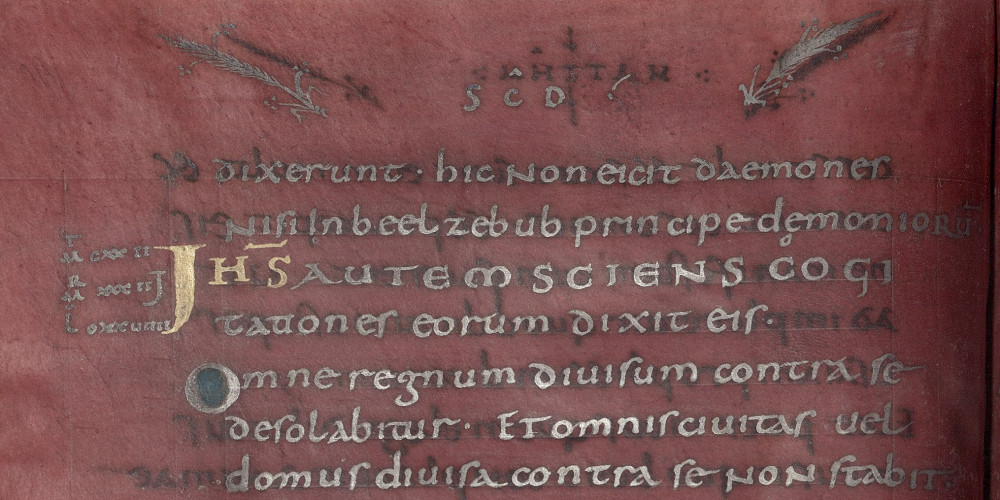 SC̄D
dixerunt· hic Non eicit daemones
Nisi in beelzebub principe dęmoniorū
Jhs̄ AUTEM SCIENS COGI
tationes eorum dixit eis·
Omne regnum diuisum contra se
desolabitur· ET omnis ciuitas uel
domus diuisa contra se non stabit